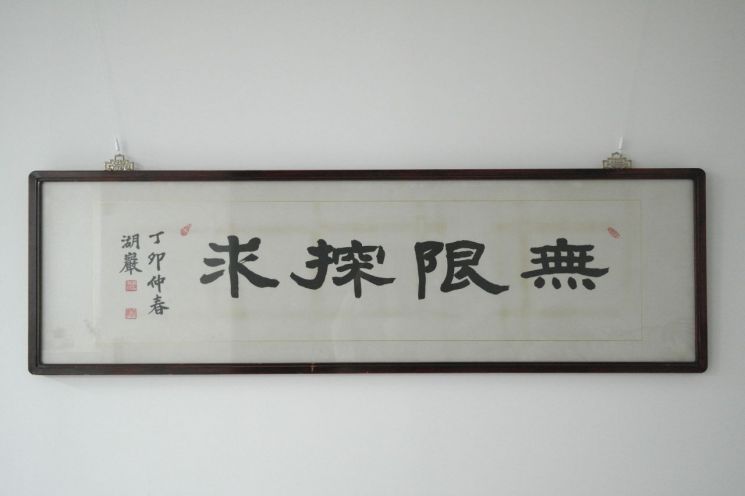 無限探求
丁卯仲春
湖巖